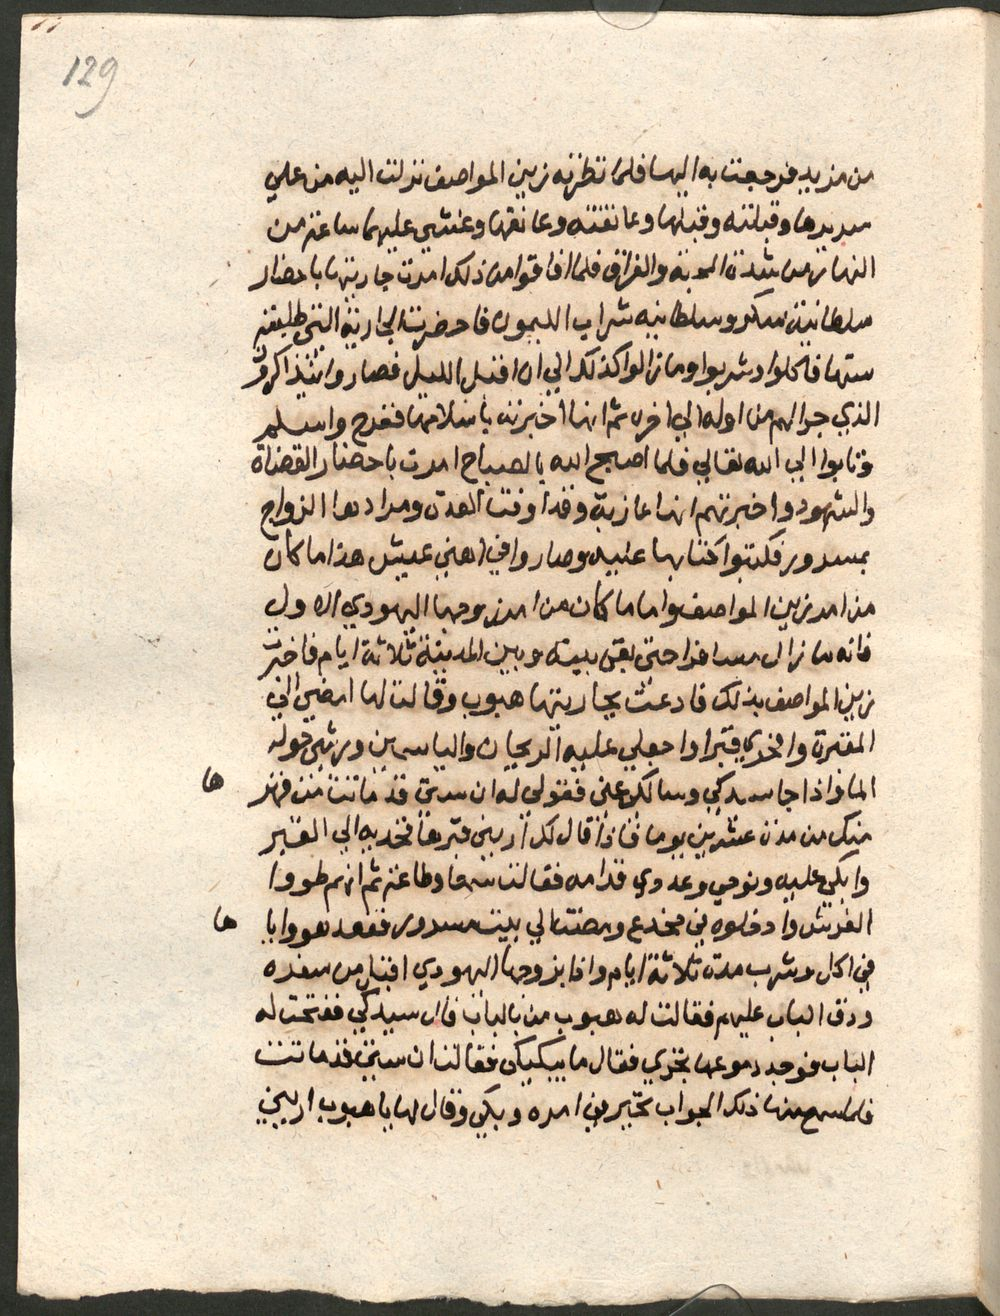 129
من مزيد فرجعت به اليها فلما نظرته زين المواصف نزلت اليه من علي
سريرها وقبلته وقبلها وعانقته وعانقها وغشي عليهما ساعة من
النهار من شدة المحبة والفراق فلما افاقوا من ذلك امرت جاريتها باحضار
سلطانية سكر وسلطانيه شراب الليمون فاحضرت الجارية التي طلبته
ستها فاكلوا وشربوا وما زالوا كذلك الي ان اقبل الليل فصاروا يتذاكرون
الذي جرا لهم من اوله الي اخره ثم انها اخبرته باسلامها ففرح واسلم
وتابوا الي الله تعالي فلما اصبح الله بالصباح امرت باحضار القضاة
والشهود واخبرتهم انها عازبة وقد اوفت العدة ومرادها الزواج
بمسرور فكتبوا كتابها عليه وصاروا في اهني عيش هذا ما كان
من امر زين المواصف واما ما كان من امر زوجها اليهودي الاول
فانه ما زال مسافرا حتي بقي بينه وبين المدينة ثلاثة ايام فاخبرت
زين المواصف بذلك فادعت بجاريتها هبوب وقالت لها امضي الي
المقبرة واحفري قبرا واجعلي عليه الريحان والياسمين ورشي حوله
الما واذا جا سيدكي وسالك عني فقولي له ان ستي قد ماتت من قهرها
منك من مدة عشرين يوما فاذا قال لك اريني قبرها فخديه الي القبر
وابكي عليه ونوحي وعددي قدامه فقالت سمعا وطاعة ثم انهم طووا
الفرش وادخلوه في مخدع ومضت الي بيت مسرور فقعد هو واياها
في اكل وشرب مدة ثلاثة ايام واذا بزوجها اليهودي اقبل من سفره
ودق الباب عليهم فقالت له هبوب من بالباب قال سيدكي ففتحت له
الباب فوجد دموعها تجري فقال ما يبكيكي فقالت ان ستي قد ماتت
فلما سمع منها ذلك الجواب تحير في امره وبكي وقال لها يا هبوب اريني